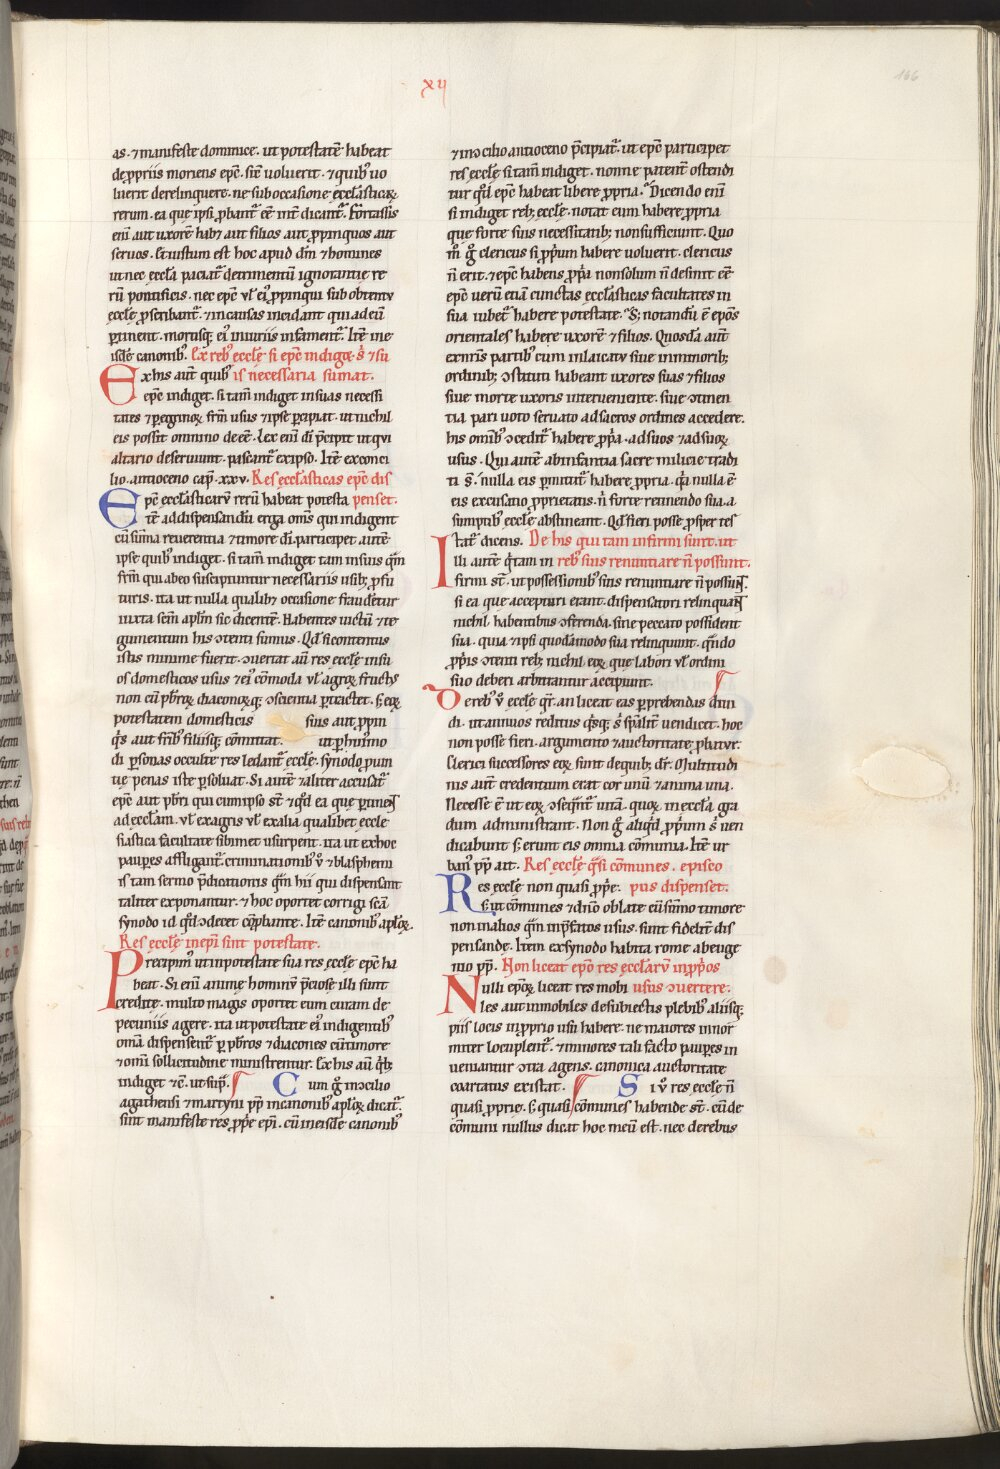 xij
166
as. ⁊ manifeste dominice. ut potestatē habeat
de ꝓpriis moriens epc̄. sic̄ uoluerit. ⁊ quibꝰ uo
luerit derelinquere. ne sub occasione eccl̄asticaꝝ
rerum. ea que ipsi ꝓbant᷑ eē int̄ dicant᷑. Fortassis
eni᷑ aut uxorē habꝫ aut filios aut ꝓpinquos aut
seruos. Et iustum est hoc apud dm̄ ⁊ homines
ut nec eccl̄a paciat᷑ detrimentū ignorantie re
rū pontificis. nec epc̄ ul̄ ei᷑ ꝓpinqui sub obtentu
eccl̄e ꝓscribant᷑. ⁊ in causas incidant qui ad eū
ꝑtinent. morsusqꝫ ei᷑ iniuriis infament᷑. Itē in e
isdē canonibꝰ. Ex rebꝰ eccl̄e si epc̄ indiget. s̄ ⁊ su
Ex his aut̄ quibꝰ is necessaria sumat.
epc̄ indiget. si tam̄ indiget in suas necessi
tates ⁊ ꝑegrinoꝝ frm̄ usus ⁊ ipse ꝑcipiat. ut nichil
eis possit omnino deeē. Lex eni᷑ di᷑ p̄cipit ut qui
altario deseruiunt. pascant᷑ ex ipso. Itē ex conci
lio. antioceno cap̄. xxv. Res eccl̄asticas epc̄ dis
Epc̄ eccl̄asticarū rerū habeat potesta penset.
tē ad dispensandū erga om̄s qui indigent
cū sūma reuerentia ⁊ timore di᷑. participet autē
ipse quibꝰ indiget. si tam̄ indiget tam in suis q̄m
frm̄ qui ab eo suscipiuntur necessariis usibꝫ ꝓfu
turis. ita ut nulla qualibꝫ occasione fraudētur
iuxta sc̄m apl̄m sic dicentē. Habentes uictū ⁊ te
gumentum his ↄtenti simus. Qd̄ si contentus
istis minime fuerit. ↄuertat aū res eccl̄e in su
os domesticos usus ⁊ ei᷑ cōmoda ul̄ agroꝝ fructus
non cū pb̄roꝝ diaconoꝝqꝫ ↄscientia ꝑtractet. s̄ eoꝝ
potestatem domesticis suis aut ꝓpin
q̄s aut frībꝰ filiisqꝫ cōmittat. ut ꝑ huim̄o
di ꝑsonas occulte res ledant᷑ eccl̄e. synodo pun
tie penas iste ꝑsoluat. Si autē ⁊ aliter accusat᷑
epc̄ aut pb̄ri qui cum ipso st̄ ⁊ qd̄ ea que ꝑtinent
ad eccl̄am. ul̄ ex agris ul̄ ex alia qualibet eccle
siastica facultate sibimet usurpent. ita ut ex hoc
pauꝑes affligant᷑. criminationibꝰ v̊ ⁊ blasphemi
is tam sermo p̄dicationis q̄m hii qui dispensant
taliter exponantur. ⁊ hoc oportet corrigi sc̄ā
synodo id qd̄ ↄdecet cōꝓbante. Itē canonibꝰ apl̄oꝝ.
Res eccl̄e in epī sint potestate.
Precipim᷑ ut in potestate sua res eccl̄e epc̄ ha
beat. Si eni᷑ anime hominū p̄ciose illi sunt
credite. multo magis oportet eum curam de
pecuniis agere. ita ut potestate ei᷑ indigentibꝰ
om̄ā dispensent᷑ ꝑ pb̄ros ⁊ diacones cū timore
⁊ om̄i sollicitudine ministrentur. Ex his aū q̄bꝫ
indiget ⁊ c̄. ut sup᷑. Cum g̊ in ↄcilio
agathensi ⁊ martyni pp̄ in canonibꝰ apl̄oꝝ dicat᷑.
sint manifeste res ꝓp̄e epī. cū in eisdē canonibꝰ
⁊ in ↄcilio antioceno p̄cipiat᷑. ut epc̄ participet
res eccl̄e si tam̄ indiget. nonne patent̄ ostendi
tur qd̄ epc̄ habeat libere ꝓpria. Dicendo eni᷑
si indiget rebꝫ eccl̄e. notat eum habere ꝓpria
que forte suis necessitatibꝫ non sufficiunt. Quo
m̊ g̊ clericus si ꝓpriū habere uoluerit. clericus
n̄ erit. ⁊ epc̄ habens ꝓpria non solum n̄ desinit eē
epc̄ uerū etiā cunctas eccl̄asticas facultates in
sua iubet᷑ habere potestate. S; notandū ē epōs
orientales habere uxorē ⁊ filios. Quosdā aut̄
ex nr̄is partibꝰ cum in laicatu siue in minoribꝫ
ordinibꝫ ↄstituti habeant uxores suas ⁊ filios
siue morte uxoris interueniente. siue ↄtinen
tia pari uoto seruato ad sacros ordines accedere.
his omībꝰ ↄcedit᷑ habere ꝓpria. ad suos ⁊ ad suoꝝ
usus. Qui autē ab infantia sacre milicie tradi
ti s̄. nulla eis ꝑmittit᷑ habere ꝓpria. qia nulla ē
eis excusatio ꝓprietatis. n̄ forte retinendo sua. a
sumptibꝫ eccl̄e abstineant. Qd̄ fieri posse ꝓsper tes
tat᷑ dicens. De his qui tam infirmi sunt. ut
Illi autē q̊ tam in rebꝰ suis renuntiare n̄ possunt.
firmi st̄. ut possessionibꝰ suis renuntiare n̄ possunt.
si ea que accepturi erant. dispensatori relinquant
nichil. habentibus ↄferenda. sine peccato possident
sua. quia ⁊ ipsi quodāmodo sua relinquunt. qn̄do
ꝓpriis ↄtenti rebꝫ nichil eoꝝ que labori ul̄ ordini
suo deberi arbitrantur accipiunt.
De rebꝰ v̊ eccl̄e qr̄. an liceat eas ꝑ prebendas diui
di. ut annuos reditus qsqꝫ. s̄ spālit᷑ uendicet. hoc
non posse fieri. argumento ⁊ auctoritate ꝓbatur.
Clerici successores eoꝝ sunt de quibꝫ dr̄. Multitudi
nis aut̄ credentium erat cor unū ⁊ anima una.
Necesse ē ut eoꝝ ↄseqnt᷑ uitā. quoꝝ in eccl̄a gra
dum administrant. Non g̊ aliqd̄ ꝓprium s̄ ven
dicabunt s̄ erunt eis omnia cōmunia. Itē ur
banꝰ pp̄ ait. Res eccl̄e q̄si cōmunes. episco
Res eccl̄e non quasi ꝓprie. pus dispenset.
s̄ ut cōmunes ⁊ dn̄o oblate cū sūmo timore
non in alios q̄m in p̄fatos usus. sunt fidelit᷑ dis
pensande. Item ex synodo habita rome a beuge
nio pp̄. Non liceat epō res eccl̄arū in ꝓprios
Nulli epōꝝ liceat res mobi usus ↄuertere.
les aut inmobiles de subiectis plebibꝰ aliisqꝫ
piis locis in ꝓprio usu habere. ne maiores inmor
miter locuplent᷑. ⁊ minores tali facto pauꝑes in
ueniantur ↄtra agens. canonica auctoritate
coartatus existat. Si v̊ res eccl̄e n̄
quasi ꝓprie. s̄ quasi cōmunes habende st̄. cū de
cōmuni nullus dicat hoc meū est. nec de rebus